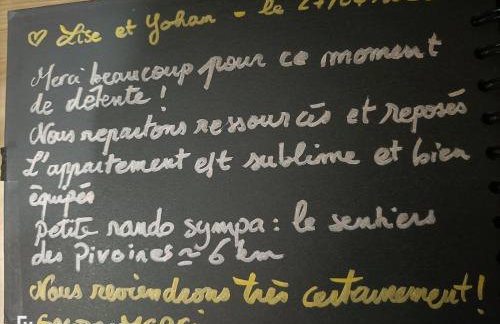 ♡ Lise et Yohan - le 27/10/
Merci beaucoup pour ce moment
de détente !
Nous repartons ressourcés et reposés
L'appartement est sublime et bien
équipés
petite rando sympa : le sentiers
des Pivoines ≃ 6 km
Nous reviendrons très certainement !